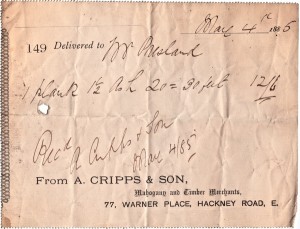 May 4th 1885
149 Delivered to Mr Presland
1 plank 1½ Ash 20 = 30 feet 12/6
Recd A Cripps & Son
May 4/85
From A. CRIPPS & SON,
Mahogany and Timber Merchants,
77, WARNER PLACE, HACKNEY ROAD, E.